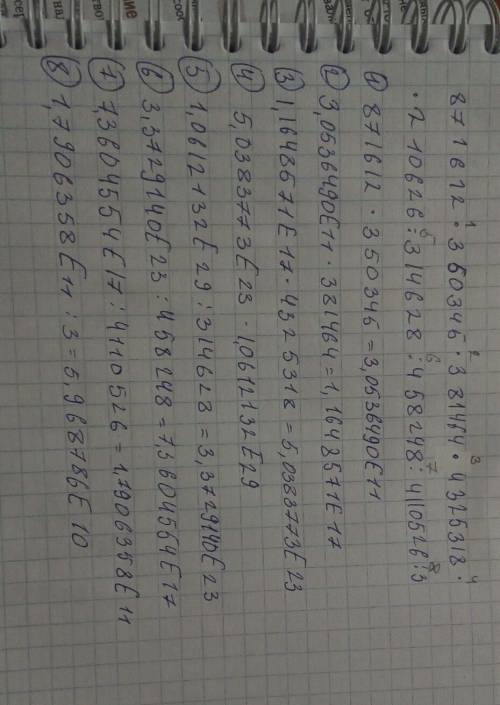 871612 · 350345 · 381464 · 4325318 ·
· 210626 : 314628 : 458248 : 4110526 : 3
1) 871612 · 350345 = 3,0536490E11
2) 3,0536490E11 · 381464 = 1,1648571E17
3) 1,1648571E17 · 4325318 = 5,0383773E23
4) 5,0383773E23 · 1,0612132E29
5) 1,0612132E29 : 314628 = 3,3729140E23
6) 3,3729140E23 : 458248 = 7,3604564E17
7) 7,3604554E17 : 4110526 = 1,7906358E11
8) 1,7906358E11 : 3 = 5,968786E10